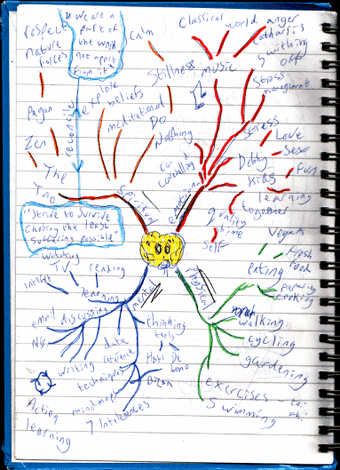 we are a
part of
the world
not apart
from it
respect
nature
forces
calm
Classical
world
anger
catharsis
switching
off
Stillness
music
stress
management
explore
beliefs
meditational
Do
Nothing
reconcile
Pagan
Zen
The
Tao
Spiritual
emotional
stress
Love
Sex
Fun
Debby
Kids
learning
together
con
controlling
giving
time
self
"Strive to Survive
causing the least
suffering possible"
watching
TV
reading
internet
learning
mental
physical
Vegan
fresh
food
eating
preparing
cooking
walking
cycling
gardening
exercises
tai
chi
swimming
email
discussion
NG
data
capture
thinking
tools
Hats De
Bono
Buzan
writing
techniques
mindmap
7 Intelligences
Action
learning